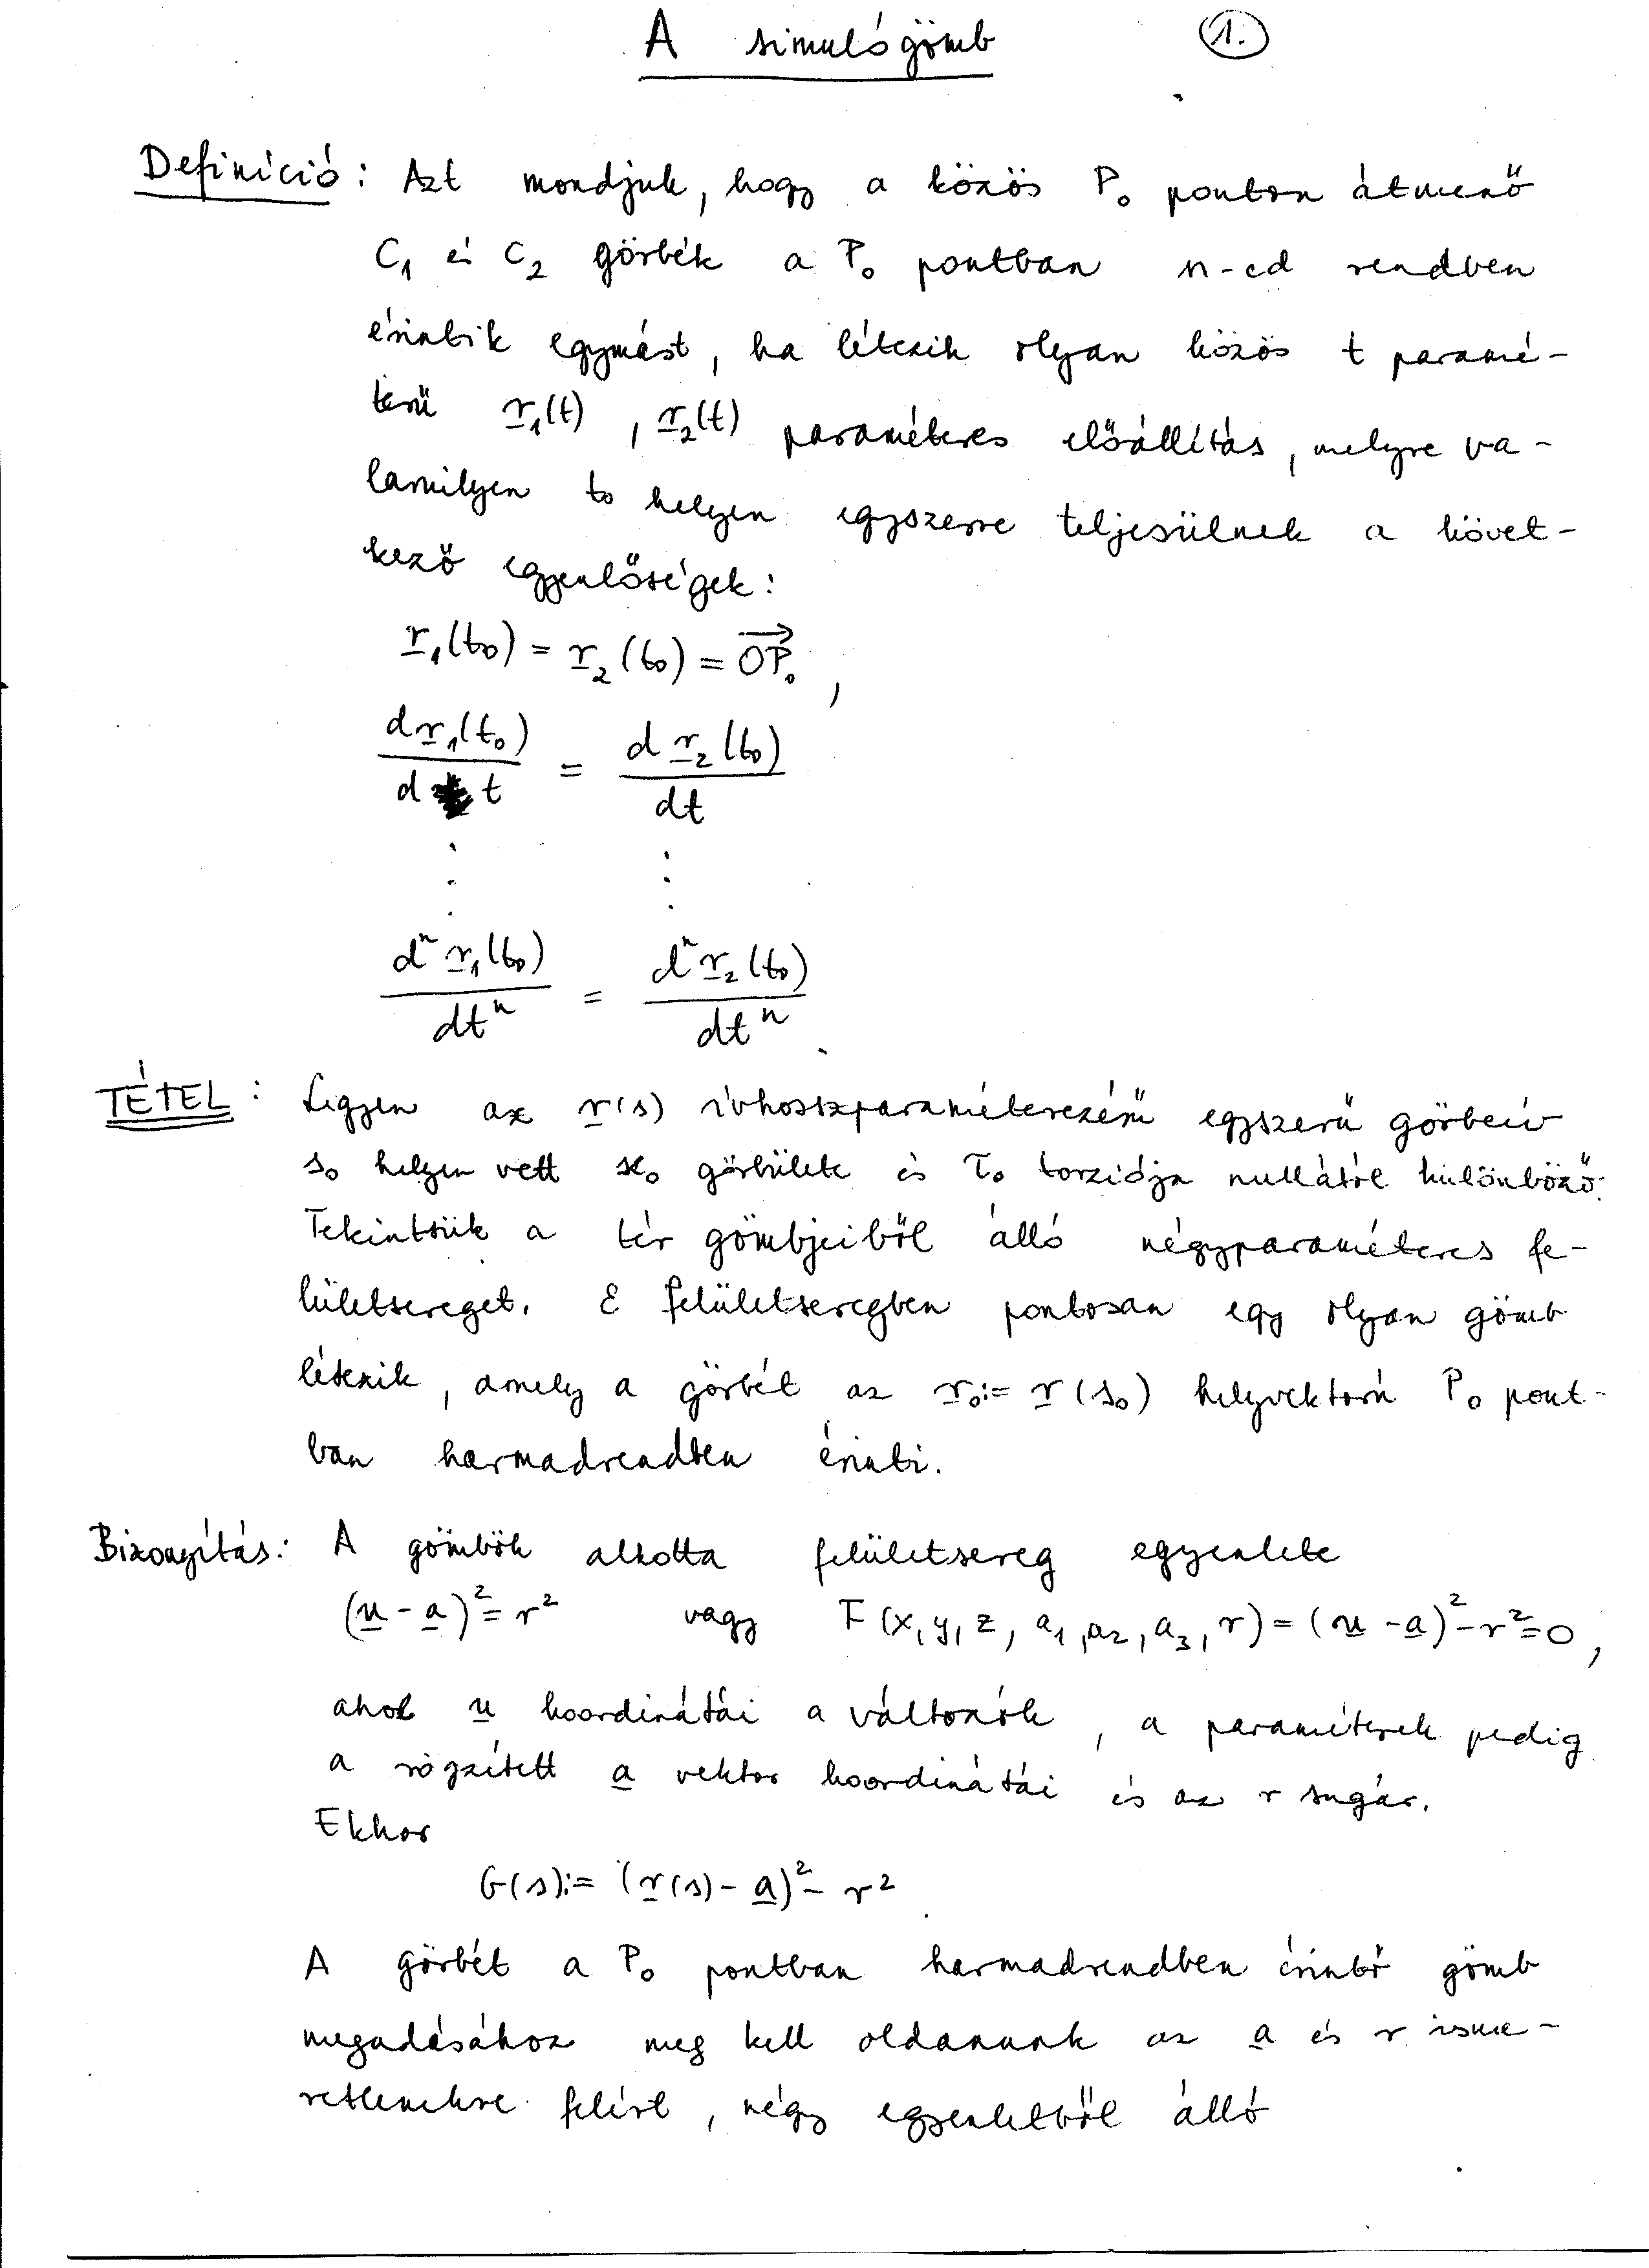 A simulógömb 1.
Definíció: Azt mondjuk, hogy a közös P₀ ponton átmenő
C₁ és C₂ görbék a P₀ pontban n-ed rendben
érintik egymást, ha létezik olyan közös t paramé-
terű r₁(t), r₂(t) paraméteres előállítás, melyre va-
lamilyen t₀ helyen egyszerre teljesülnek a követ-
kező egyenlőségek:
r₁(t₀) = r₂(t₀) = OP₀,
dr₁(t₀)/dt = dr₂(t₀)/dt
⋮ ⋮
dⁿr₁(t₀)/dtⁿ = dⁿr₂(t₀)/dtⁿ.
TÉTEL: Legyen az r(s) ívhosszparaméterezésű egyszerű görbeív
s₀ helyen vett ϰ₀ görbülete és τ₀ torziója nullától különböző.
Tekintsük a tér gömbjeiből álló négyparaméteres fe-
lületsereget. E felületseregben pontosan egy olyan gömb
létezik, amely a görbét az r₀:= r(s₀) helyvektorú P₀ pont-
ban harmadrendben érinti.
Bizonyítás: A gömbök alkotta felületsereg egyenlete
(u - a)² = r² vagy F(x, y, z, a₁, a₂, a₃, r) = (u - a)² - r² = 0,
ahol u koordinátái a változók, a paraméterek pedig
a rögzített a vektor koordinátái és az r sugár.
Ekkor
G(s):= (r(s) - a)² - r².
A görbét a P₀ pontban harmadrendben érintő gömb
megadásához meg kell oldanunk az a és r isme-
retlenekre felírt, négy egyenletből álló